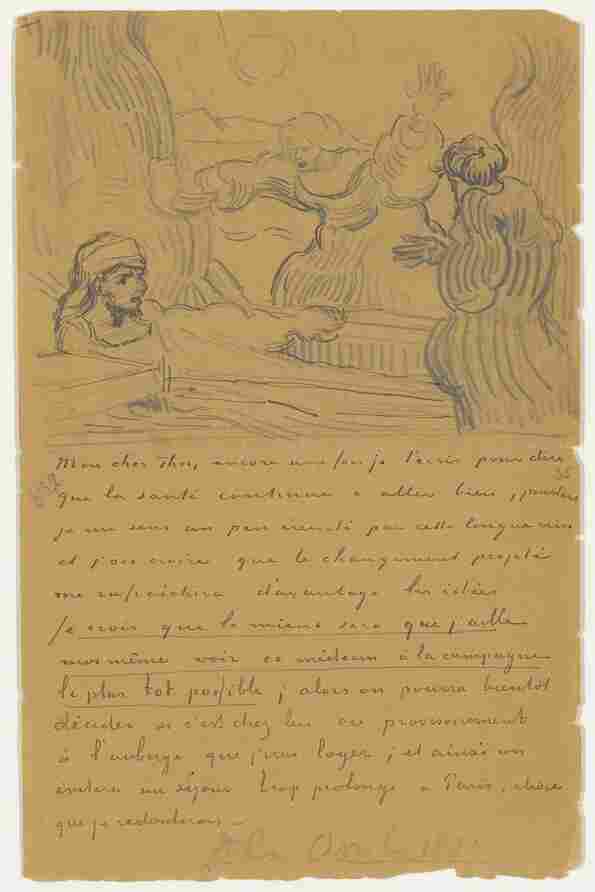 Mon cher Theo, encore une fois je t'écris pour dire
que la santé continue à aller bien, pourtant
je me sens un peu éreinté par cette longue crise
et j'ose croire que le changement projeté
me rafraichira davantage les idées
Je crois que le mieux sera que j'aille
moi même voir ce médecin à la campagne
le plus tot possible ; alors on pourra bientôt
décider si c'est chez lui ou provisoirement
à l'auberge que j'irai loger ; et ainsi on
évitera un séjour trop prolongé à Paris, chose
que je redouterais. _